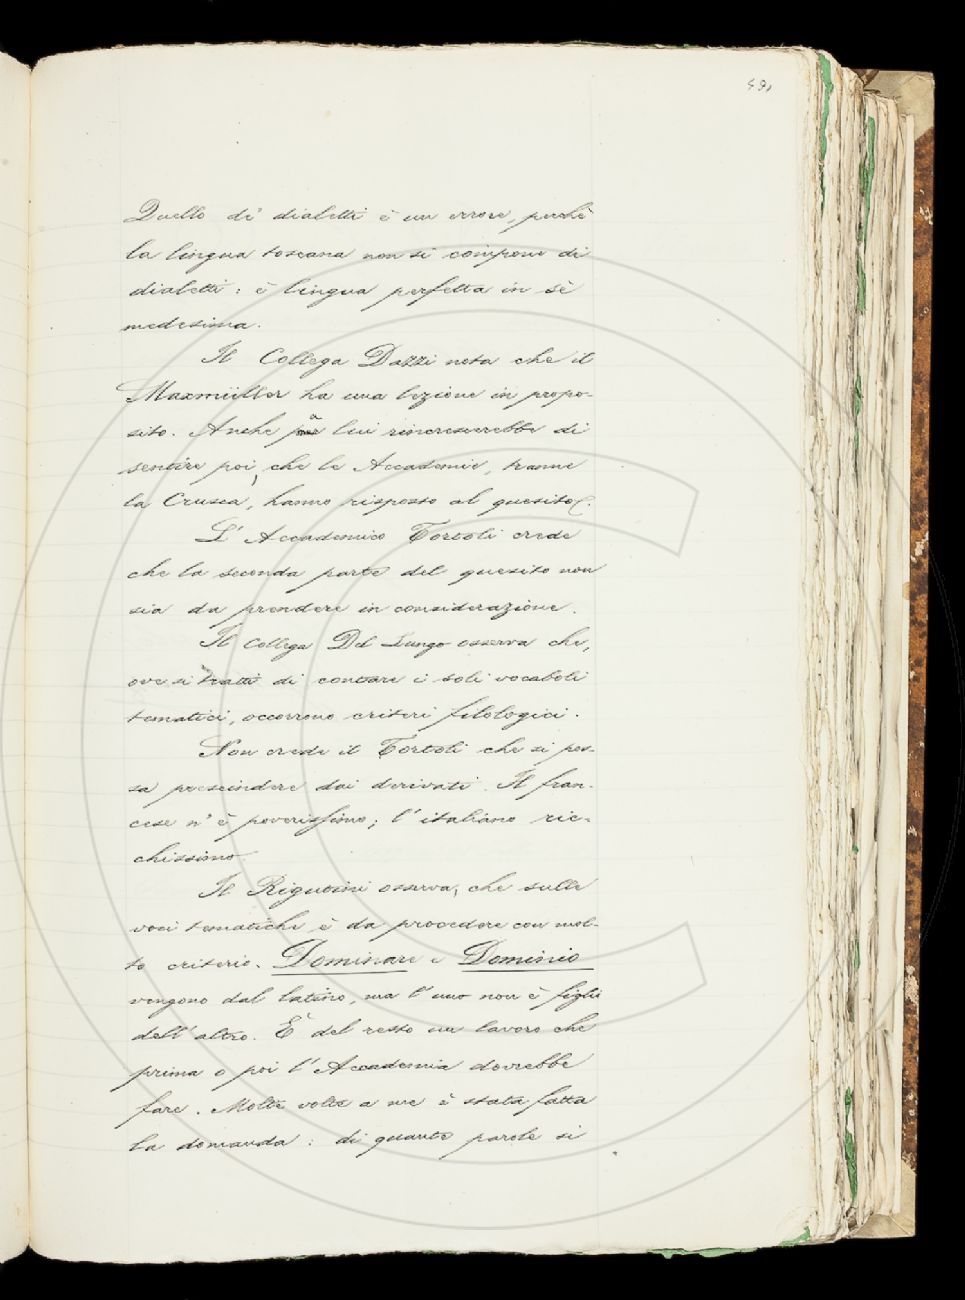 491
Quello di' dialetti è un errore, perchè
la lingua toscana non si compone di
dialetti: è lingua perfetta in sè
medesima.
Il Collega Dazzi nota che il
Maxmüller ha una lezione in propo-
sito. Anche a lui rincrescerebbe di
sentire poi, che le Accademie, tranne
la Crusca, hanno risposto al quesito.
L' Accademico Tortoli crede
che la seconda parte del quesito non
sia da prendere in considerazione.
Il Collega Del Lungo osserva che,
ove si tratti di contare i soli vocaboli
tematici, occorrono criteri filologici.
Non crede il Tortoli che si pos-
sa prescindere dai derivati. Il fran-
cese n' è poverissimo; l' italiano ric-
chissimo.
Il Rigutini osserva, che sulle
voci tematiche è da procedere con mol-
to criterio. Dominare e Dominio
vengono dal latino, ma l' uno non è figlio
dell' altro. È del resto un lavoro che
prima o poi l' Accademia dovrebbe
fare. Molte volte a me è stata fatta
la domanda: di quante parole si